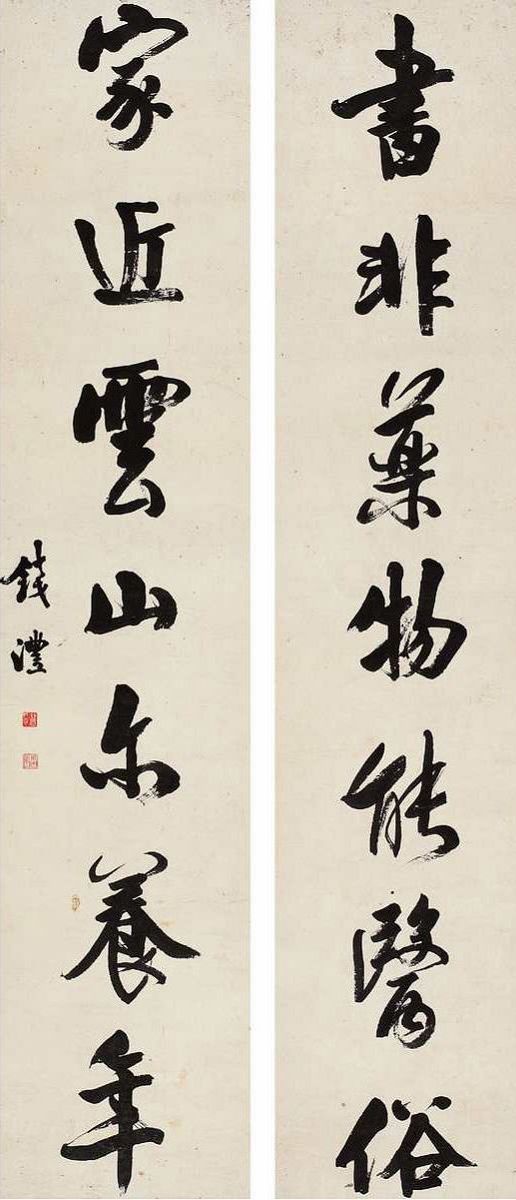 書非藥物能醫俗
家近雲山亦養年
錢灃